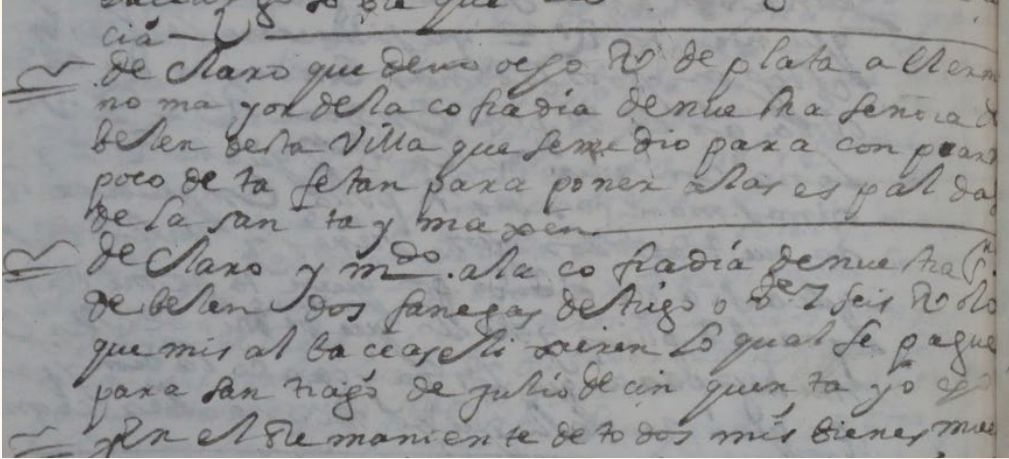 cia
declaro que devo ocho Rs de plata a el erma
no mayor de la cofradia de nuestra señora de
belen desta Villa que se me dio para conprar
poco de tafetan para poner a las espaldas
de la santa ymaxen
declaro y mdo. a la cofradía de nuestra Sra
de belen dos fanegas de trigo o diez y seis Rs lo
que mis albaceas elixieren lo qual se pague
para santiago de julio de cinquenta y ocho
y En el Remaniente de todos mis bienes mue